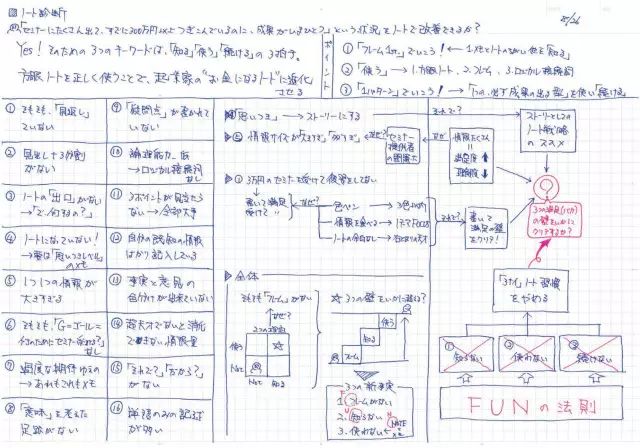 ノート診断
「セミナーにたくさん出て、すでに300万以上つぎこんでいるのに、成果が出ないひと」という状況をノートで改善できるか?
Yes! そのための3つのキーワードは、「知る」「使う」「続ける」の3拍子。
方眼ノートを正しく使うことで、起業家の"お金になるノート"に進化させる
ポイント
① 「フレーム1つ」でいこう!
② 「使う」→ 1.方眼ノート、2.フレーム、3.ロジカル接続詞
③ 「1パターン」でいこう!
① そもそも、「見返し」していない
② 見出し+3分割がない
③ ノートの「出口」がない→「で、何するの?」
④ ノートになっていない!
⑤ 1つ1つの情報が大きすぎる
⑥ そもそも、「G=ゴール=何のためにセミナー
⑦ 過度な期待ゆえの→あれもこれもメモ
⑧ 「意味」を考えた足跡がない
⑨ 「疑問点」が書かれていない
⑩ 論理能力・低→ロジカル接続詞なし
⑪ 3ポイントが見当たらない→全部大事
⑫ 自分の既知の情報ばかり記入している
⑬ 事実と意見の色分けが出来ていない
⑭ 天才でないと消化できない情報量
⑮ 「それで?」「だから?」がない
⑯ 単語のみの記述が多い
「思いつき」→ストーリーにする
それで?
ストーリーとしてのノート戦略のススメ
情報サイズが大きすぎ、多すぎ
なぜ?
セミナー提供者の
なぜ
情報たくさん=
満足度↑
理解度↓
① 3万円のセミナーを受けて復習をしてない
書いて満足
受けて〃
なぜ?
色ペン
3色以内
情報を食べる
ノートの余白なし
それで?
書いて満足の壁をクリア!
3つの満足(バカ)の壁をいかにクリアするか?
全体
そもそも「フレーム」がない
なぜ?
2つの理由
使う
Not
Not
知る
☆ 3つの壁をいかに超える?
使う
知る
フレーム
3つの新事実
1. フレームがない
2. 知らない
3. 使わない
NOTE
ノート習慣をやめる
① 知らない
② 使わない
③ 続けない
FUNの法則